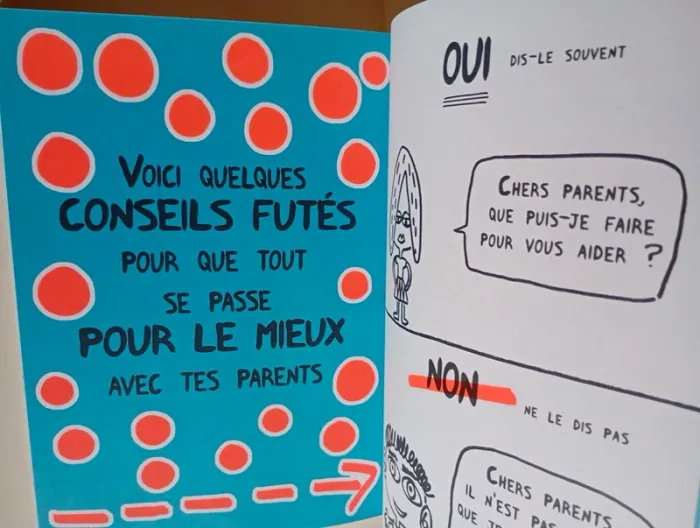 VOICI QUELQUES
CONSEILS FUTÉS
POUR QUE TOUT
SE PASSE
POUR LE MIEUX
AVEC TES PARENTS
OUI DIS-LE SOUVENT
CHERS PARENTS,
QUE PUIS-JE FAIRE
POUR VOUS AIDER ?
NON NE LE DIS PAS
CHERS PARENTS
IL N'EST PAS
QUE